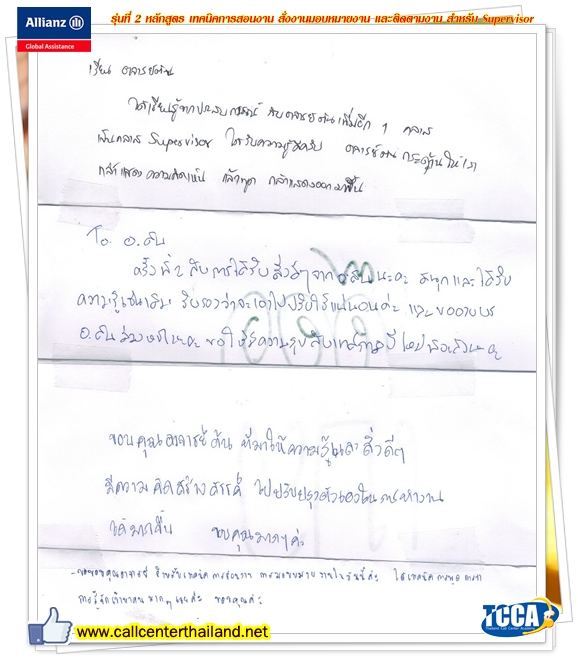 รุ่นที่ 2 หลักสูตร เทคนิคการสอนงาน สั่งงานมอบหมายงาน และติดตามงาน สำหรับ Supervisor
Allianz
Global Assistance
เรียน อาจารย์ต้น
ได้เรียนรู้จากประสบการณ์ กับอาจารย์ต้นเพิ่มอีก 1 คลาส
เป็นคลาส Supervisor ได้รับความรู้ อาจารย์ต้น กระตุ้นให้เรา
กล้าแสดงความคิดเห็น กล้าพูด กล้าแสดงออกมากขึ้น
To อ.ต้น
ครั้งที่ 2 กับการได้รับสิ่งดีๆ จาก อ.ต้นนะคะ สนุกและได้รับ
ความรู้เช่นเดิม รับรองว่าจะเอาไปปรับใช้แน่นอนค่ะ และขออวยพร
อ.ต้น นะคะ ขอให้มีความสุขกับเทศกาลปีใหม่ นะคะ
ขอบคุณอาจารย์ต้น ที่มาให้ความรู้และสิ่งดีๆ
มีความคิดสร้างสรรค์ ไปปรับปรุงตัวเองในการทำงาน
ได้มากขึ้น ขอบคุณมากๆ ค่ะ
- ขอขอบคุณอาจารย์ สำหรับเทคนิคการสอนงาน การมอบหมาย ในวันนี้ค่ะ ได้เทคนิค
การ มากๆ เลยค่ะ ขอบคุณค่ะ
www.callcenterthailand.net
TCCA
Thailand Call Center Academy